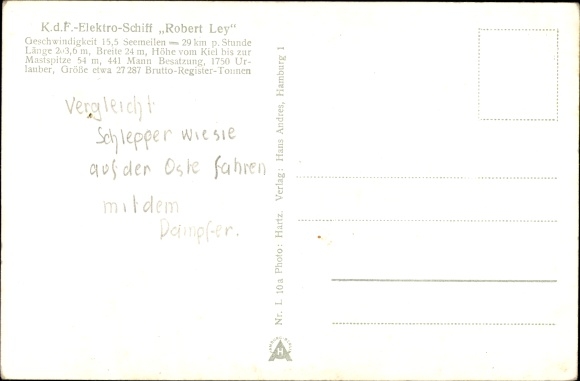 K.d.F.-Elektro-Schiff „Robert Ley"
Geschwindigkeit 15,5 Seemeilen = 29 km p. Stunde
Länge 203,6 m, Breite 24 m, Höhe vom Kiel bis zur
Mastspitze 54 m, 441 Mann Besatzung, 1750 Ur-
lauber, Größe etwa 27 287 Brutto-Register-Tonnen
Vergleicht
Schlepper wie sie
auf der Oste fahren
mit dem
Dampfer.
Nr. L 10a Photo: Hartz. Verlag: Hans Andres, Hamburg 1